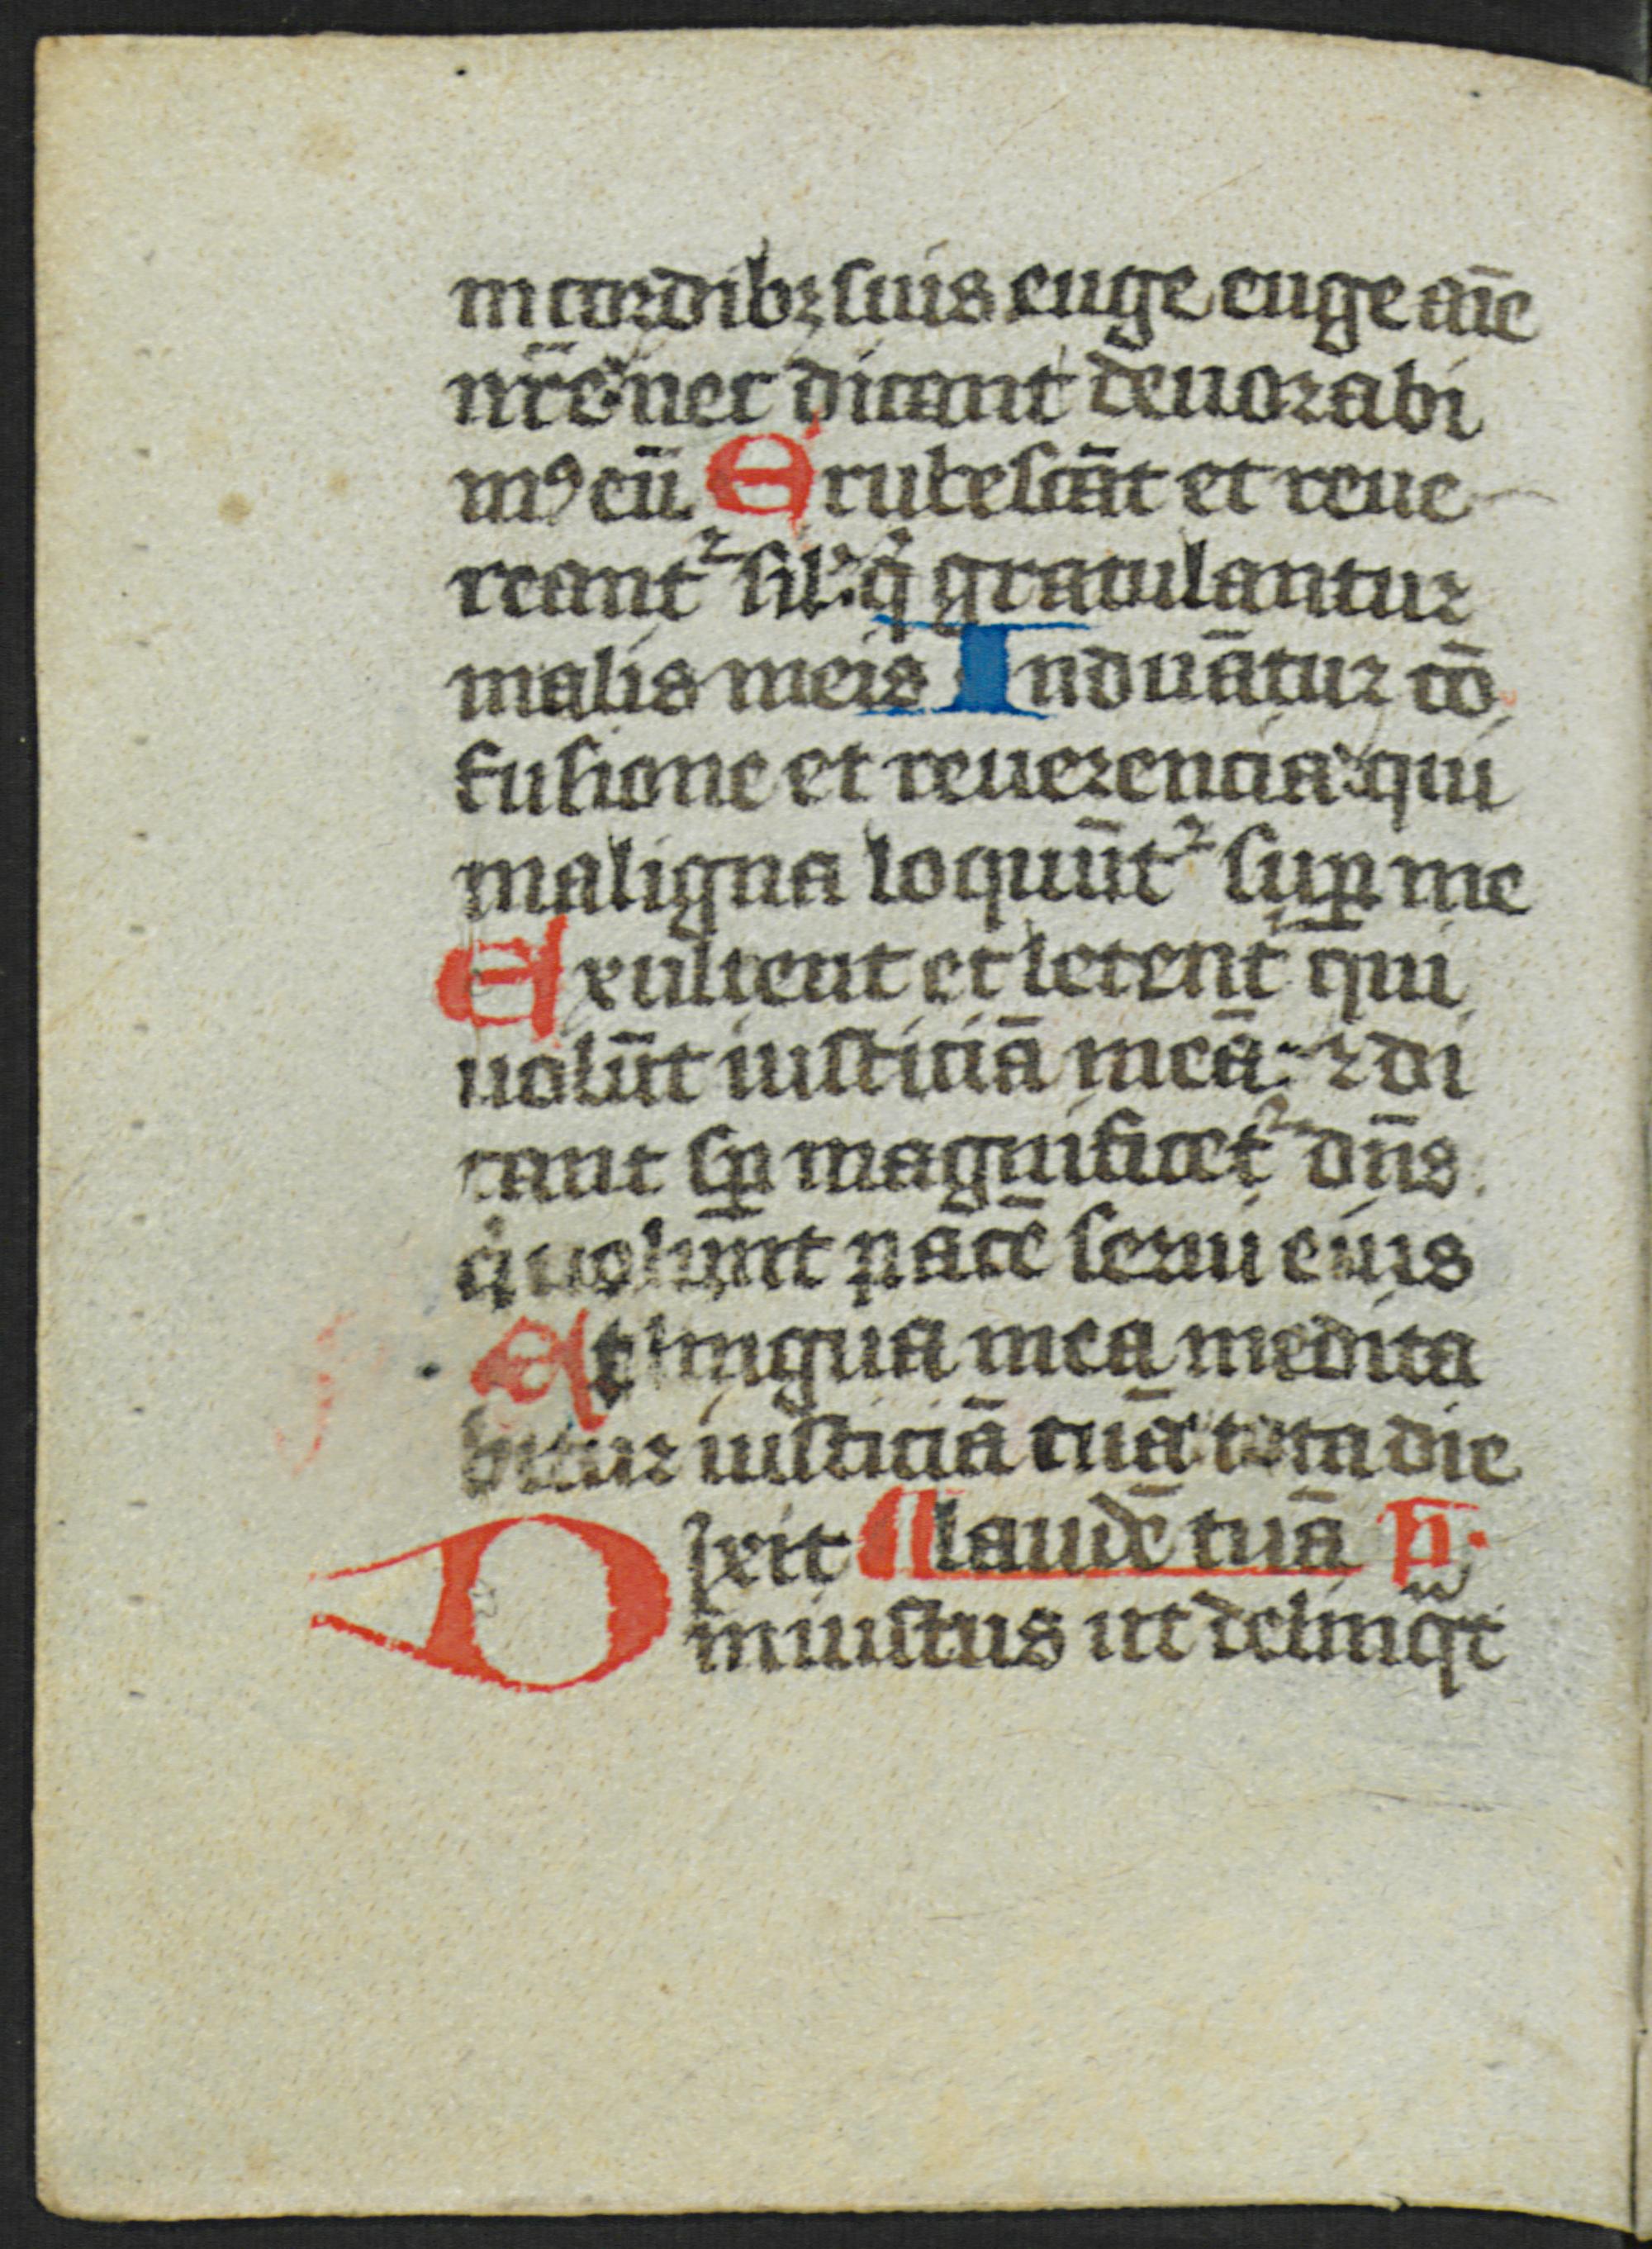 in cordibꝫ suis euge euge aīe
nr̄e nec dicant deuorabi
mꝰ eū Erubescāt et reue
reantᷣ sil qͥ gratulantur
malis meis Induātur cō
fusione et reuerencia qui
maligna loquūtᷣ suꝑ me
Exultent et letent qui
uolūt iusticiā meā ⁊ di
cant sꝑ magnificetᷣ dn̄s
qͥ uolunt pacē serui eius
Et lingua mea medita
bitur iusticiā tuā tota die
Dixit laudē tuā
iniustus ut delinqͣt